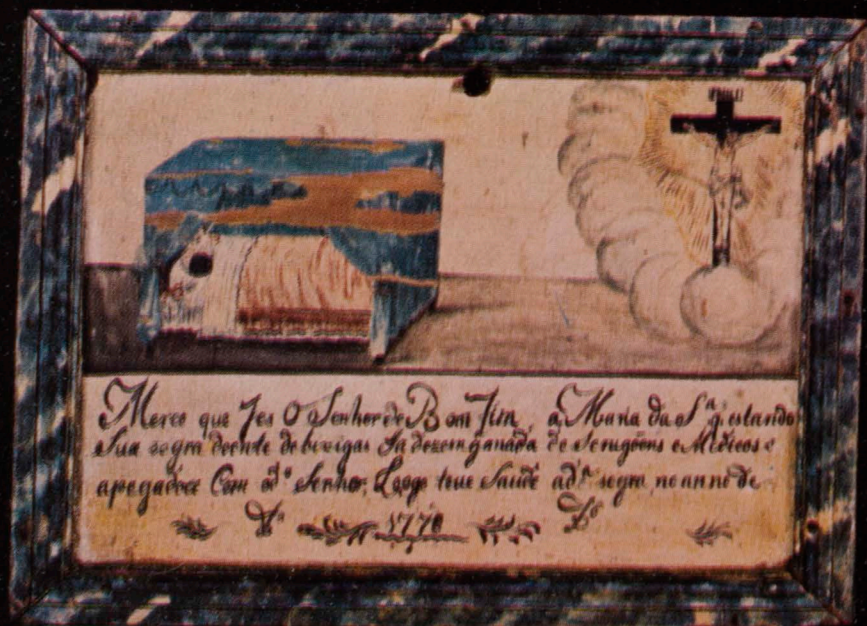 INRI
Merce que fes O Senhor de Bom Fim, a, Maria da S.ª q. estando
Sua segra doente de bixigas Ja dezemganada de Serugoens e Medicos e
apegadoce Com o d.º Senhor; Logo teue Saude a d.ª segra no anno de
1778